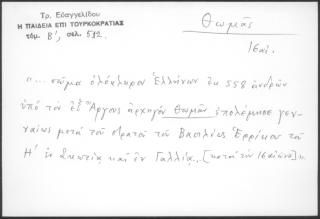 Τρ. Εὐαγγελίδου
Η ΠΑΙΔΕΙΑ ΕΠΙ ΤΟΥΡΚΟΚΡΑΤΙΑΣ
τόμ. Β', σελ. 512
Θωμᾶς
16 αἰ.
"... σῶμα ὁλόκληρον Ἑλλήνων ἐκ 558 ἀνδρῶν
ὑπὸ τὸν ἐξ Ἄργους ἀρχηγὸν Θωμᾶν ἐπολέμησε γεν-
ναίως μετὰ τοῦ στρατοῦ τοῦ Βασιλέως Ἑρρίκου τοῦ
Η' ἐν Σκωτίᾳ καὶ ἐν Γαλλίᾳ.. [κατὰ τὸν 16 αἰῶνα] ".